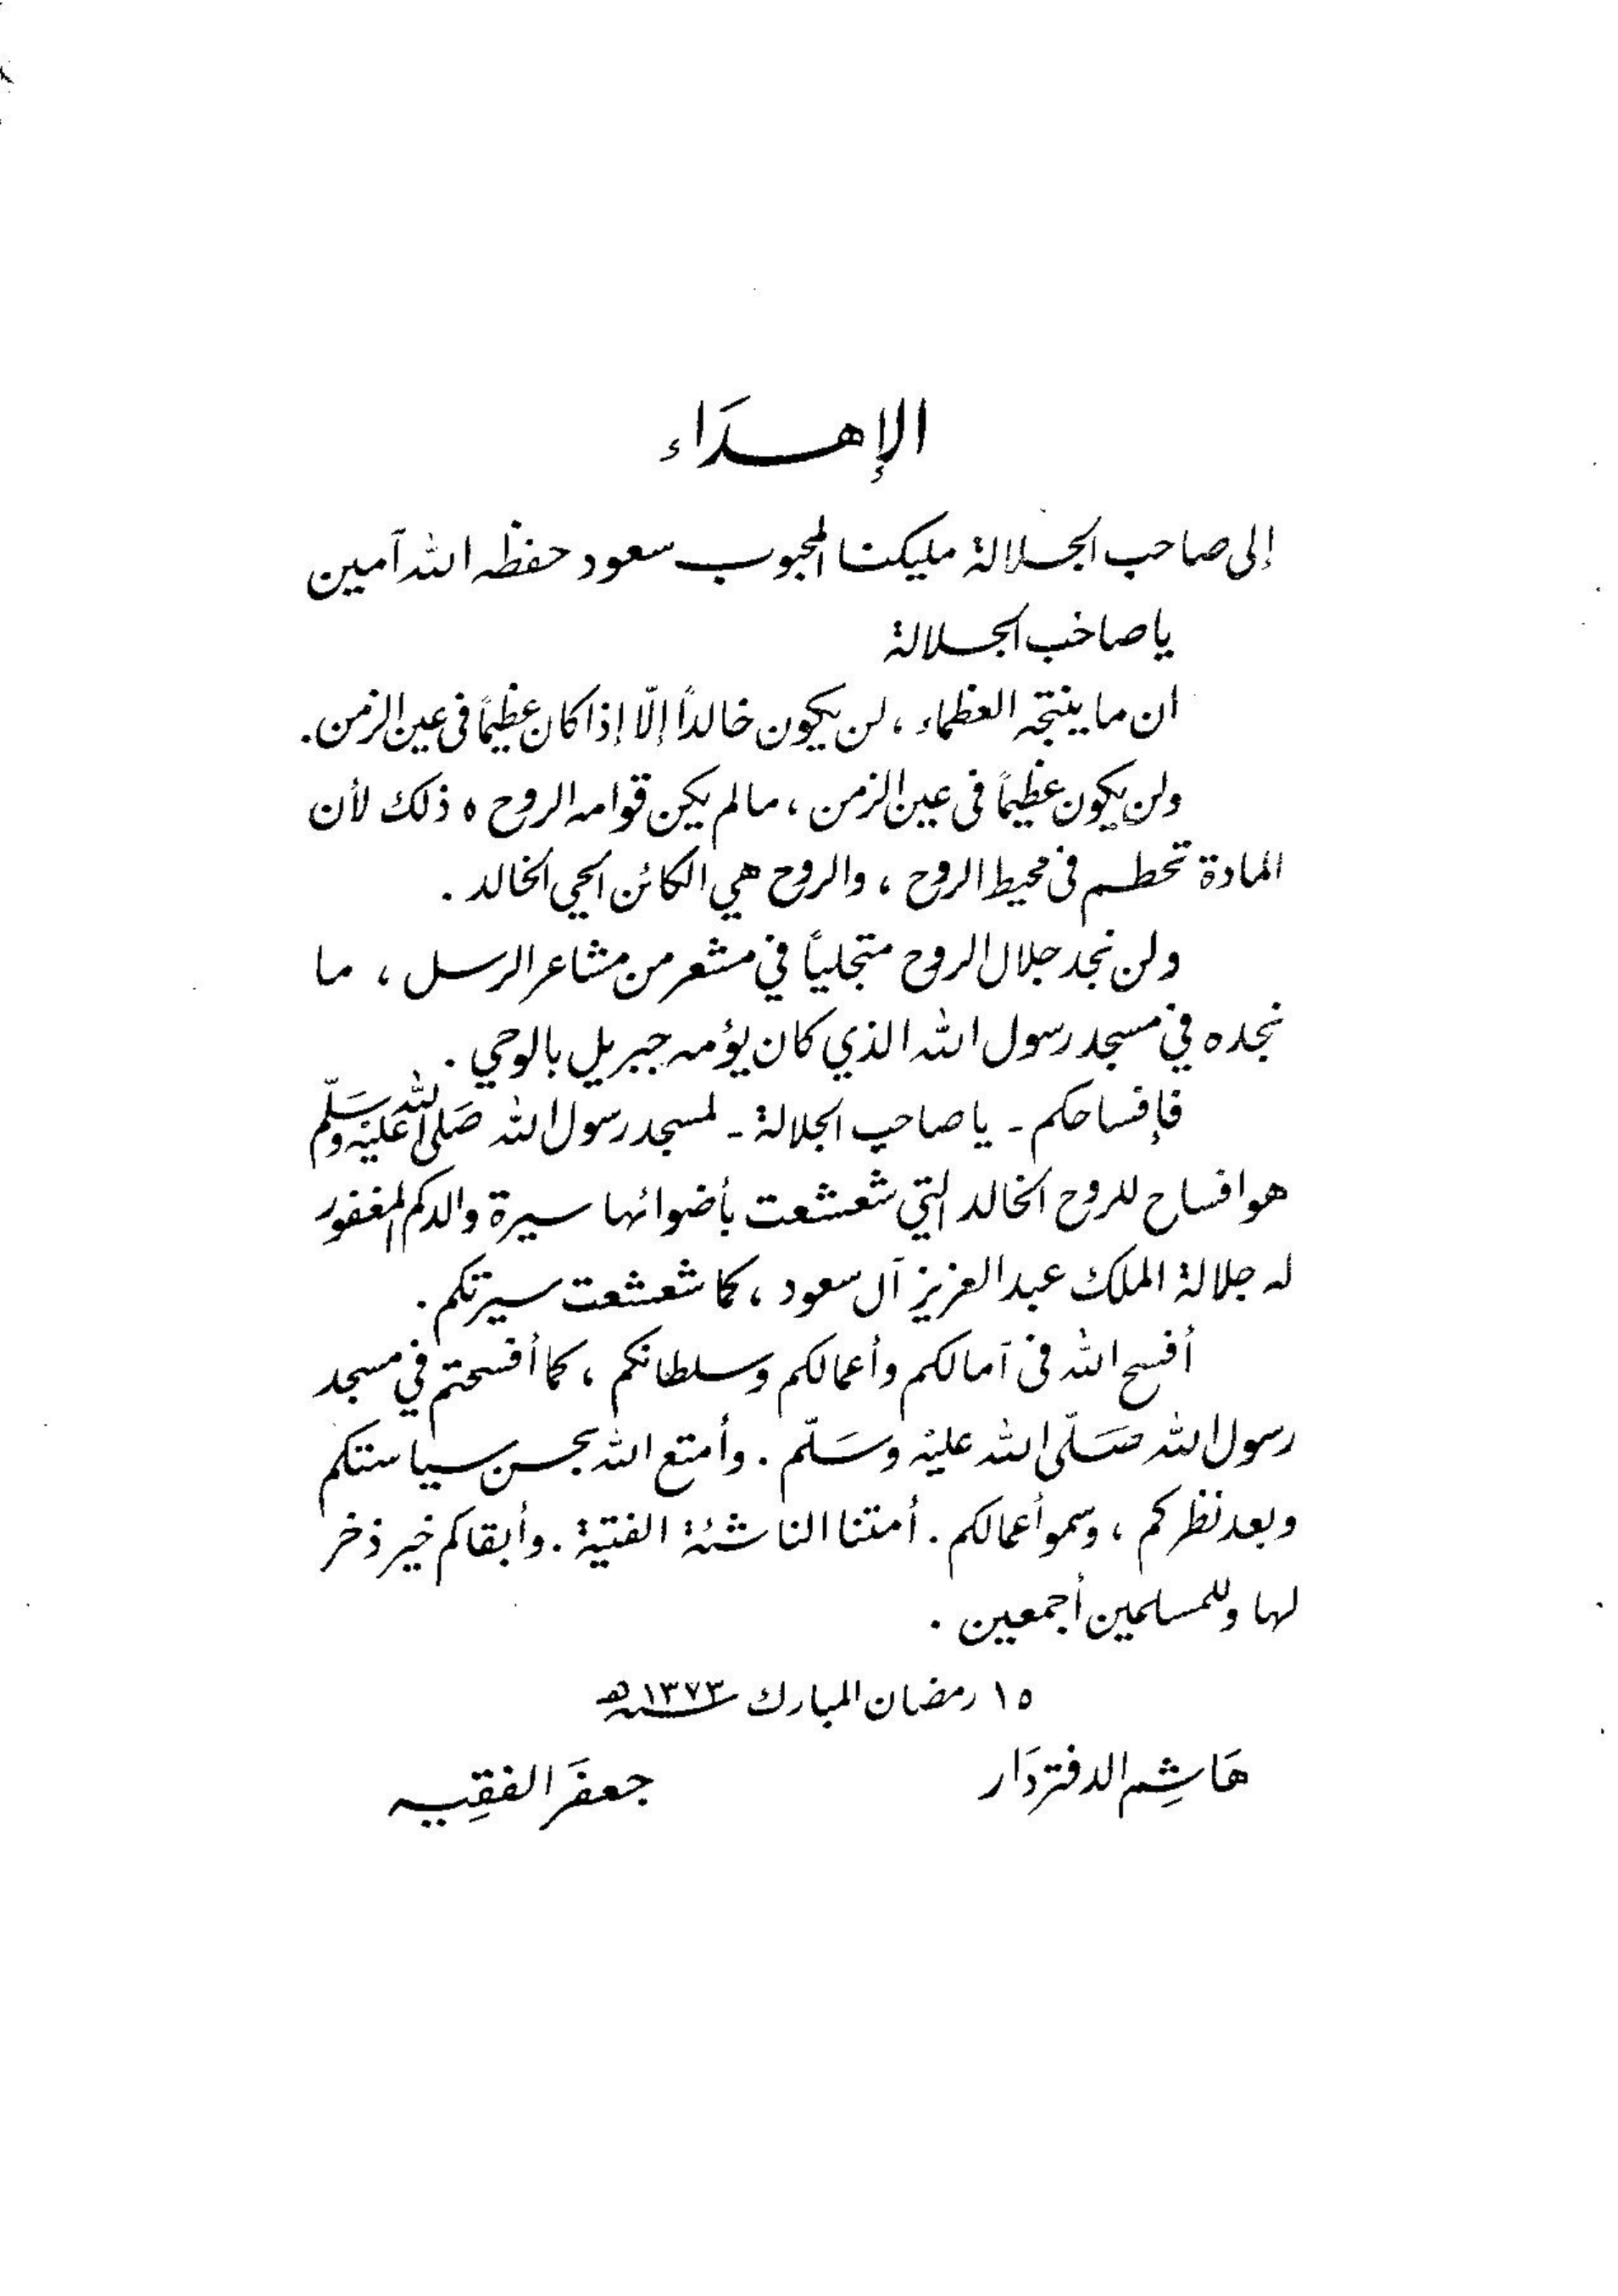 الإهداء
إلى صاحب الجلالة مليكنا المحبوب سعود حفظه الله آمين
يا صاحب الجلالة
ان ما ينتجه العظماء ، لن يكون خالداً إلّا إذا كان عظيماً في عين الزمن .
ولن يكون عظيماً في عين الزمن ، ما لم يكن قوامه الروح ٥ ذلك لأن
المادة تحطم في محيط الروح ، والروح هي الكائن الحي الخالد .
ولن نجد جلال الروح متجلياً في مشعر من مشاعر الرسل ، ما
نجده في مسجد رسول الله الذي كان يؤمه جبريل بالوحي .
فإفساحكم - يا صاحب الجلالة - لمسجد رسول الله صَلى الله عليْه وسَلّم
هو افساح للروح الخالد التي شعشعت بأضوائها سيرة والدكم المغفور
له جلالة الملك عبد العزيز آل سعود ، كما شعشعت سيرتكم .
أفسح الله في آمالكم وأعمالكم وسلطانكم ، كما أفسحتم في مسجد
رسول الله صَلّى الله عليْه وسَلّم . وأمتع الله بحسن سياستكم
وبعد نظركم ، وسمو أعمالكم . أمتنا الناشئة الفتية . وأبقاكم خير ذخر
لها وللمسلمين أجمعين .
١٥ رمضان المبارك سنة ١٣٧٣ هـ
هَاشِم الدفتردَار
جعفَر الفقِيه